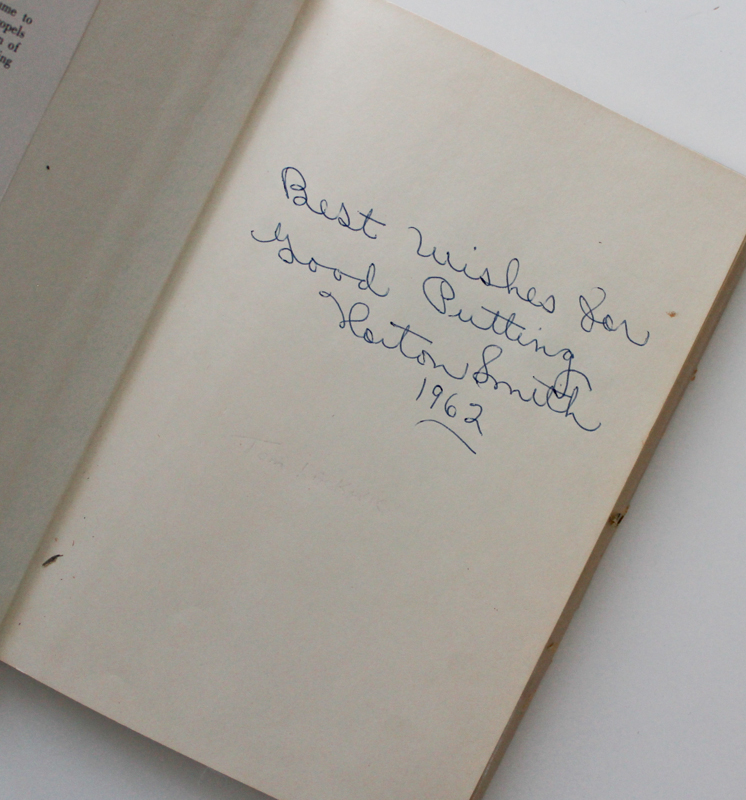 ume to
opels
n of
ng
Best Wishes for
Good Putting
Horton Smith
1962